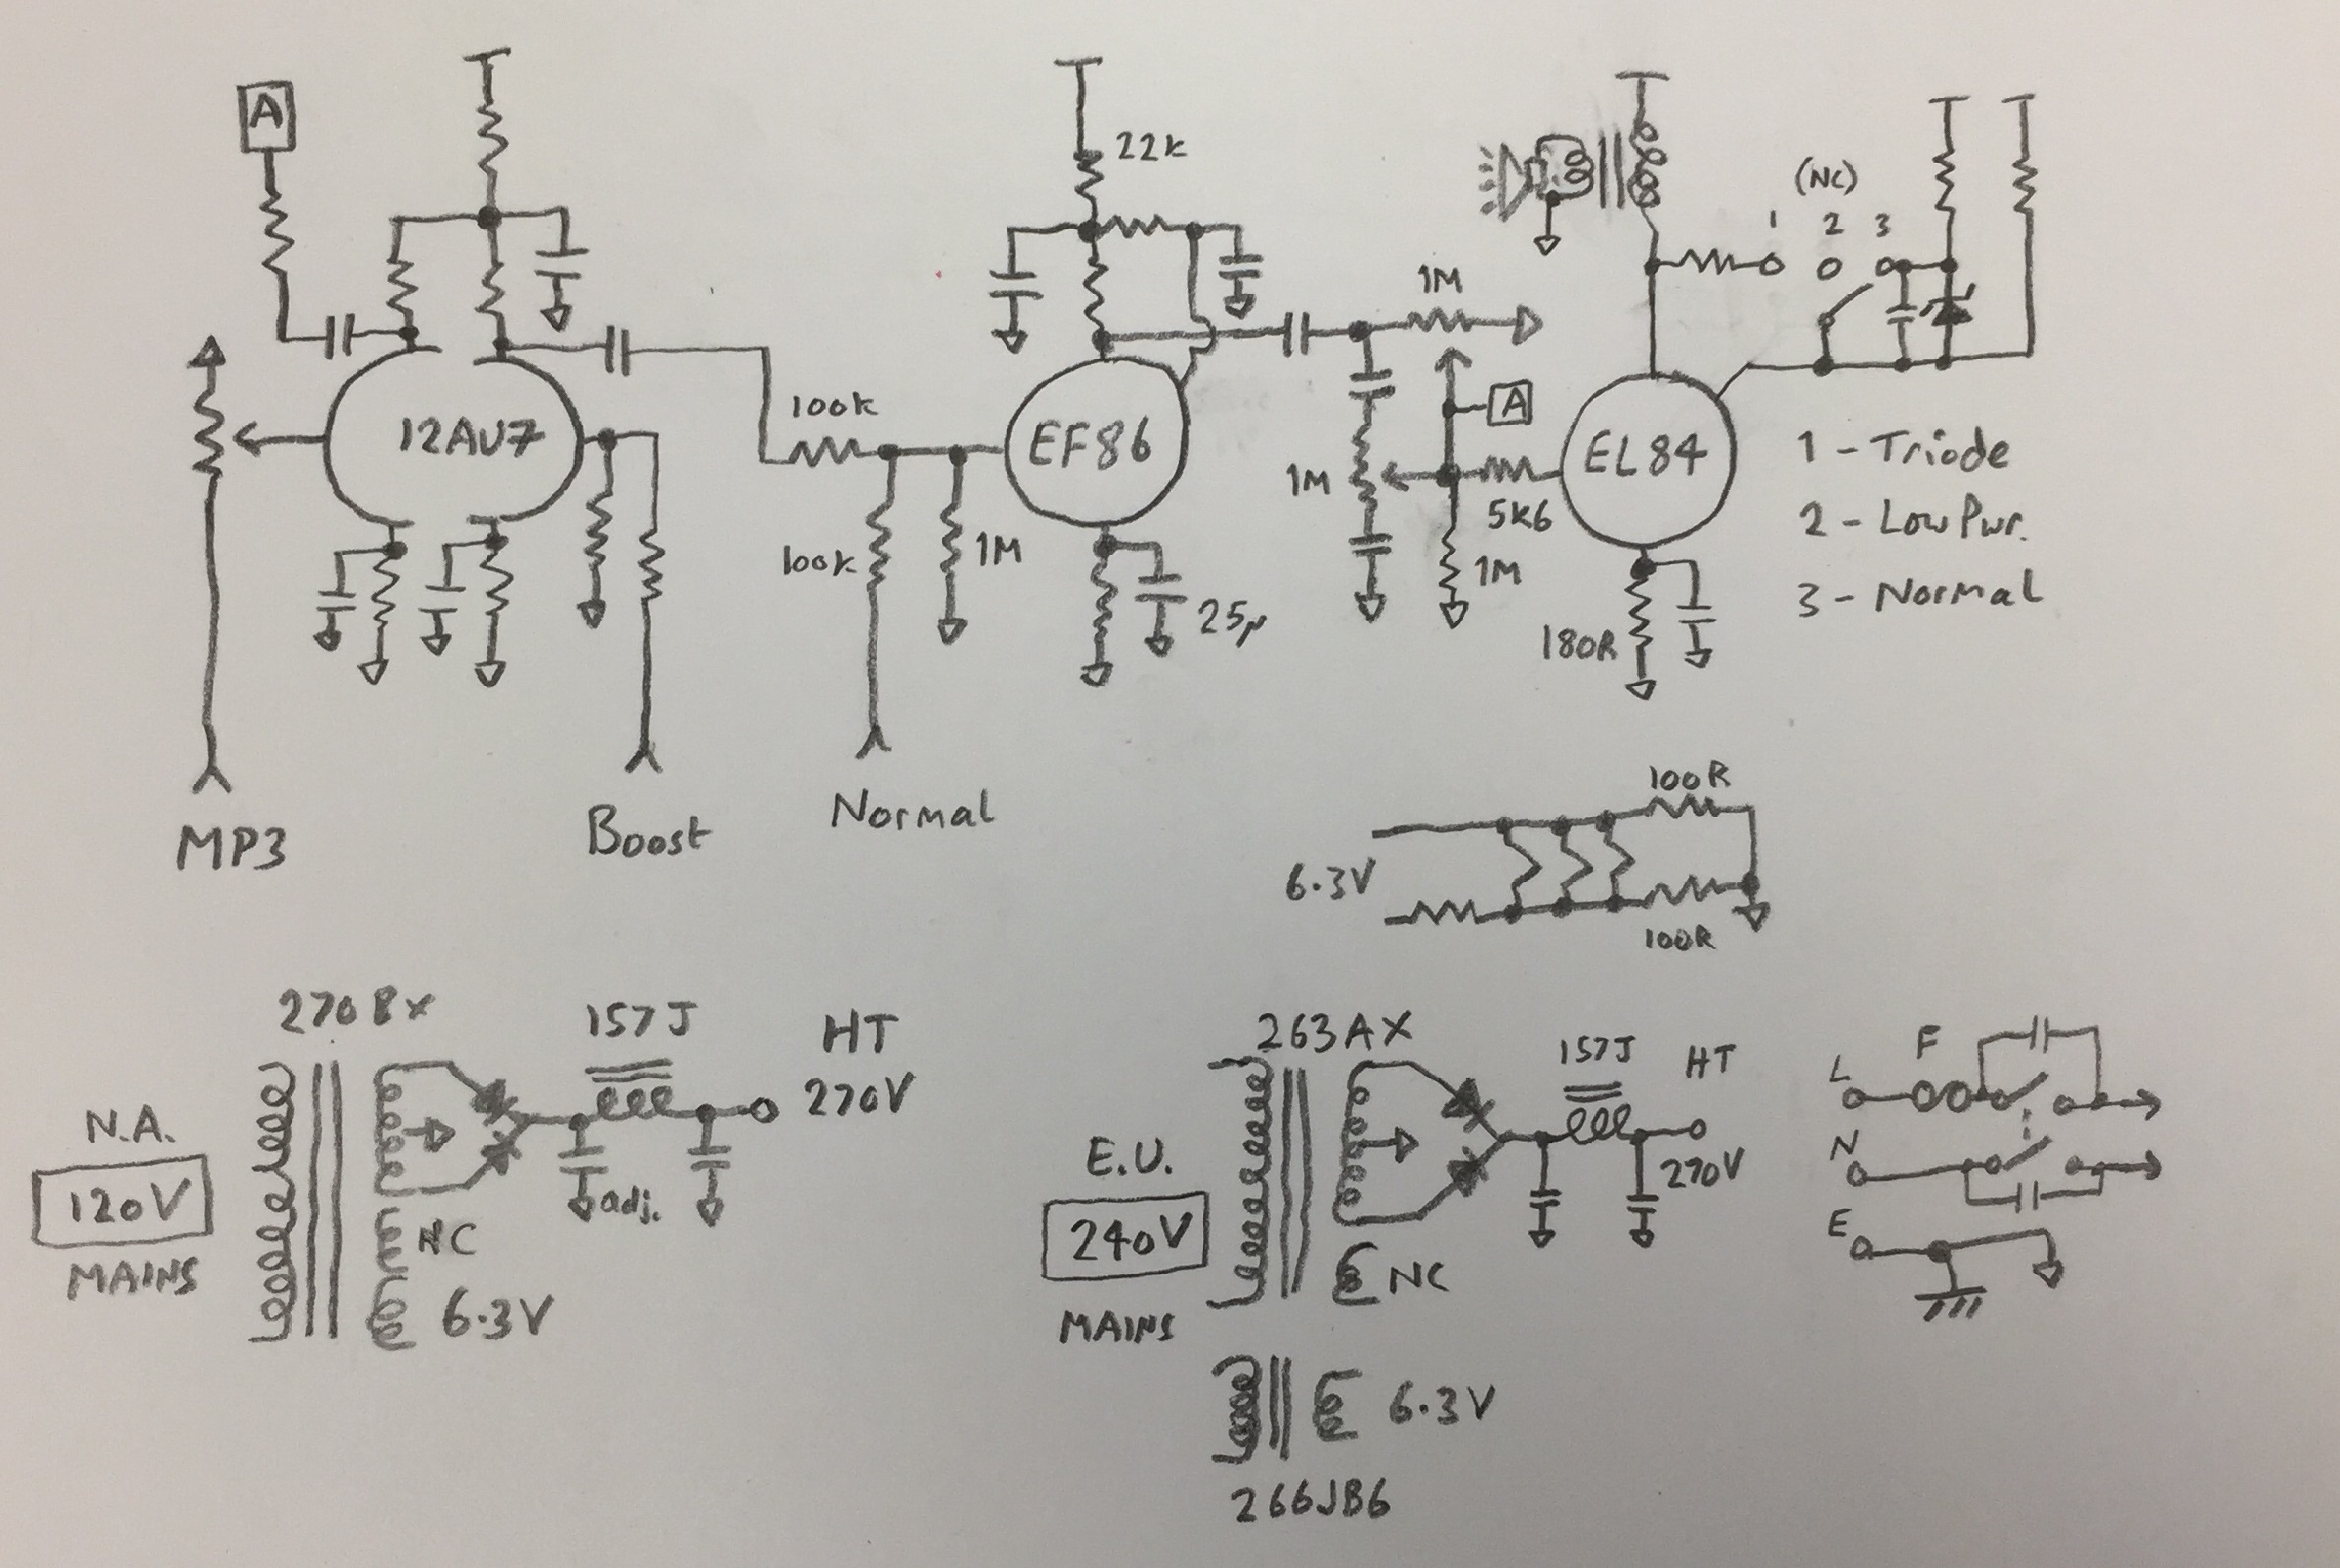 A
22k
(NC)
1 2 3
1M
12AU7
100k
EF86
A
EL84
1M
5k6
100k
1M
1M
25µ
180R
1 - Triode
2 - Low Pwr.
3 - Normal
MP3
Boost
Normal
100R
6.3V
100R
270BX
157J
HT
270V
N.A.
120V
MAINS
adj.
NC
6.3V
263AX
157J
HT
270V
E.U.
240V
MAINS
NC
6.3V
266JB6
F
L
N
E